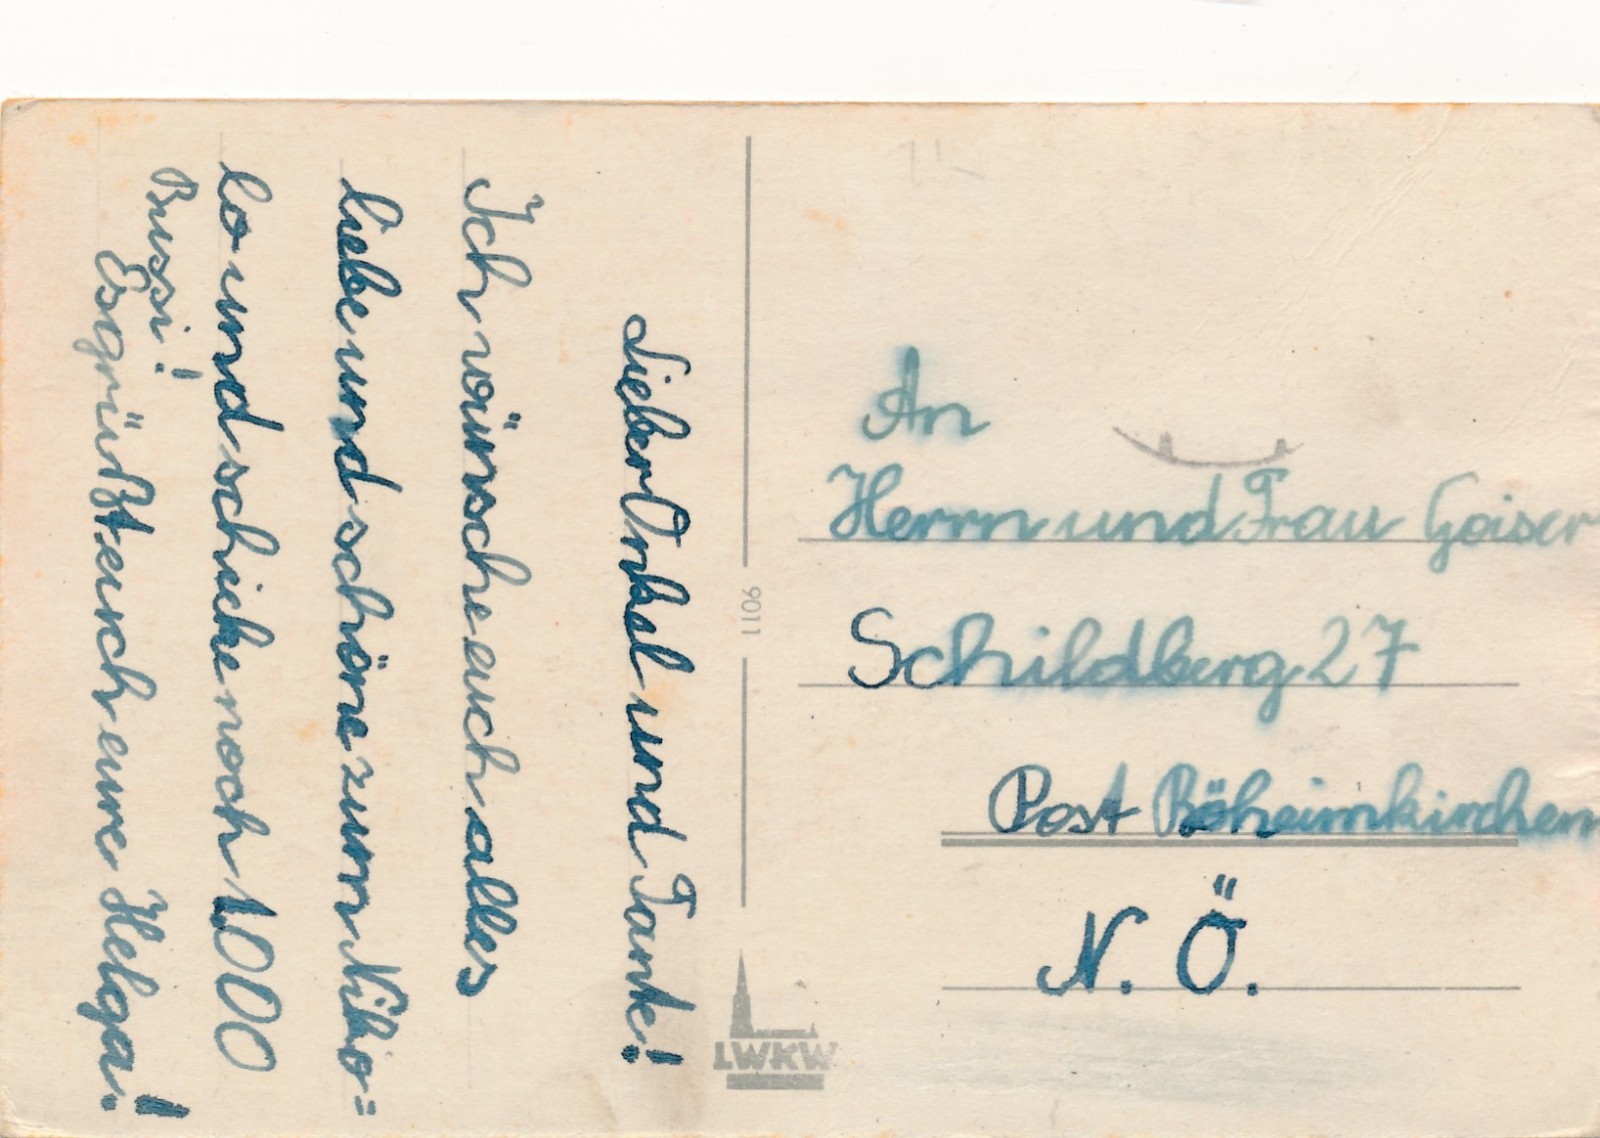 Lieber Onkel und Tante!
Ich wünsche euch alles
liebe und schöne zum Niko=
lo und schicke noch 1000
Bussi!
Es grüßt euch eure Helga!
9011
LWKW
An
Herrn und Frau Gaiser
Schildberg 27
Post Böheimkirchen
N. Ö.